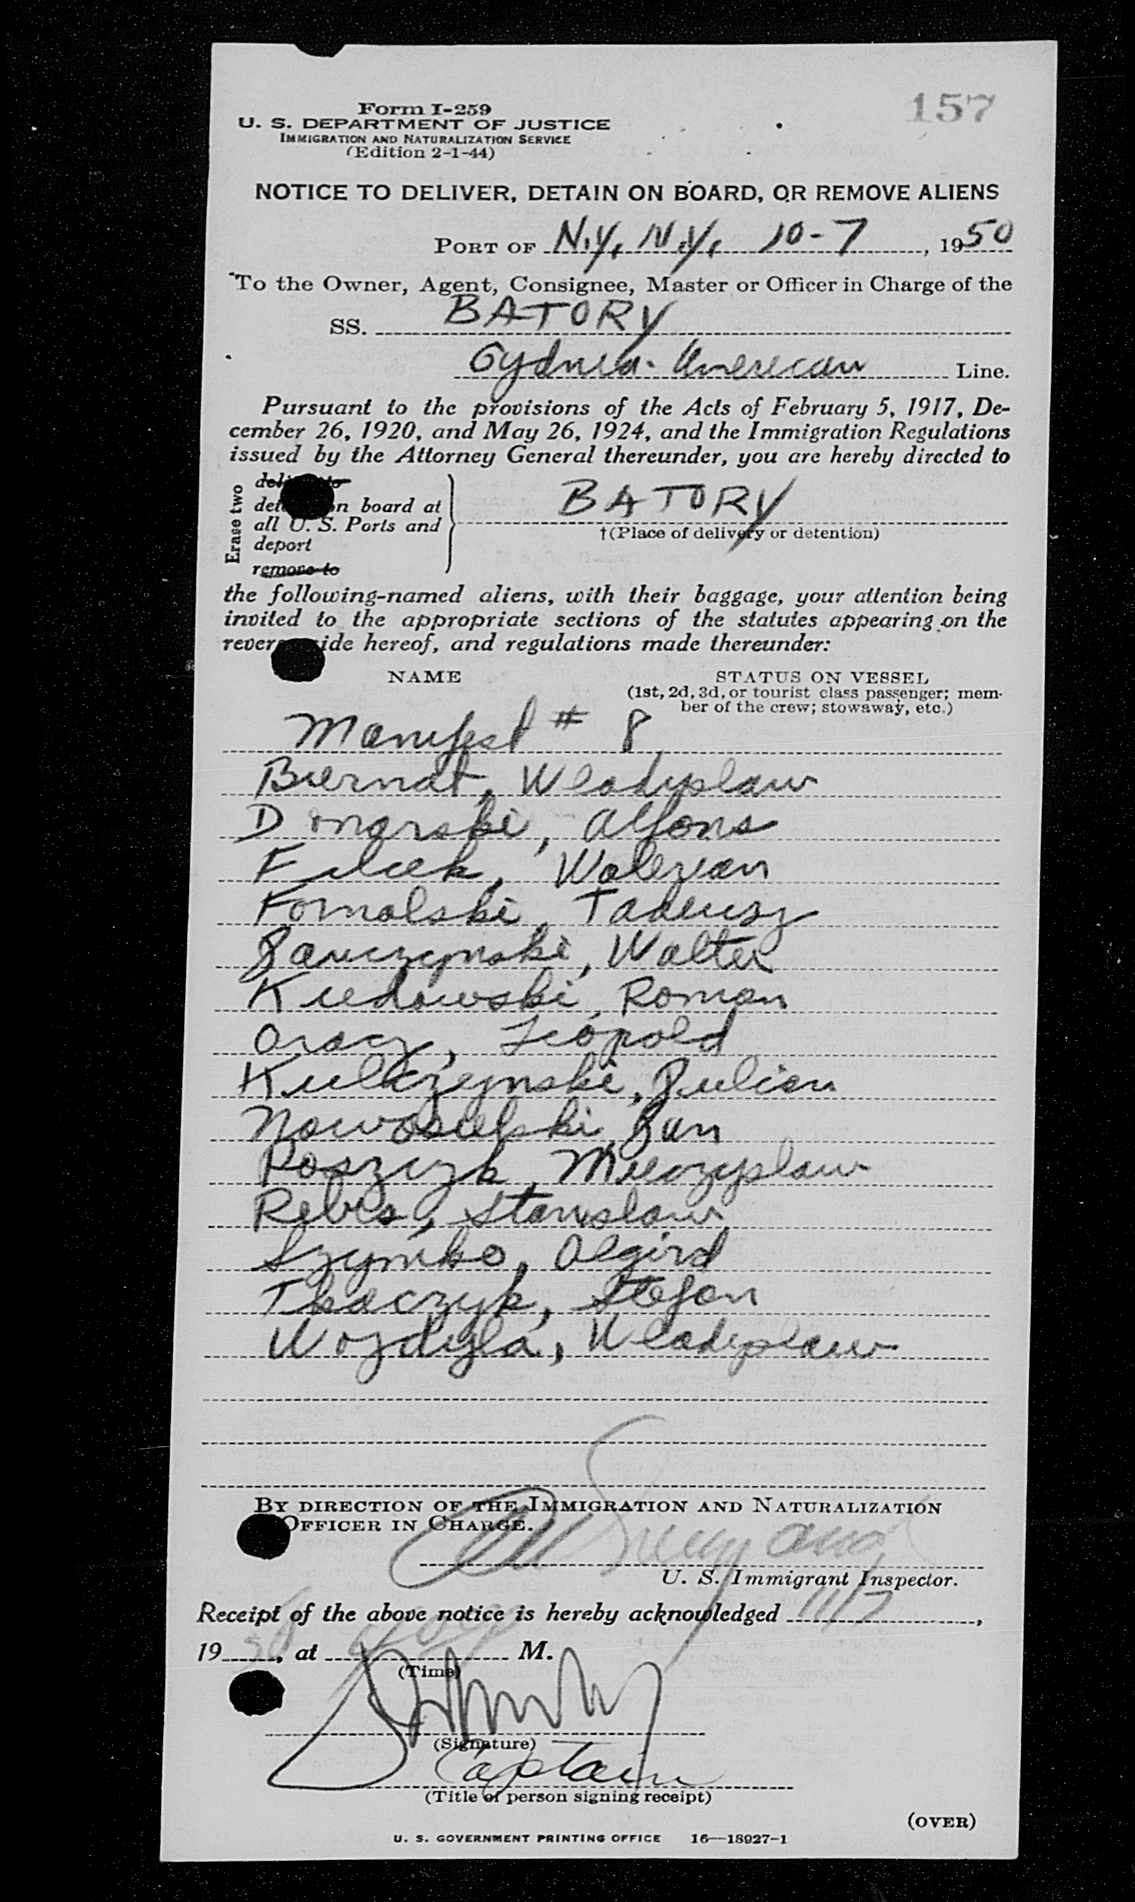 157
Form I-259
U. S. DEPARTMENT OF JUSTICE
IMMIGRATION AND NATURALIZATION SERVICE
(Edition 2-1-44)
NOTICE TO DELIVER, DETAIN ON BOARD, OR REMOVE ALIENS
PORT OF N.Y, N.Y, 10-7, 1950
To the Owner, Agent, Consignee, Master or Officer in Charge of the
SS. BATORY
Gydnia-American Line.
Pursuant to the provisions of the Acts of February 5, 1917, De-
cember 26, 1920, and May 26, 1924, and the Immigration Regulations
issued by the Attorney General thereunder, you are hereby directed to
Erase two
on board at
all U. S. Ports and
deport
remove to
BATORY
†(Place of delivery or detention)
the following-named aliens, with their baggage, your attention being
invited to the appropriate sections of the statutes appearing on the
reverse side hereof, and regulations made thereunder:
NAME
STATUS ON VESSEL
(1st, 2d, 3d, or tourist class passenger; mem-
ber of the crew; stowaway, etc.)
Manifest # 8
Biernat, Wladyslaw
Domarski, Alfons
Filcek, Walerian
Fornalski, Tadeusz
Janczynski, Walter
Kiedowski, Roman
Oracz, Leopold
Kulczynski, Julian
Nowosielski, Jan
Poszczyk, Mieczyslaw
Rebis, Stanislaw
Szymko, Algird
Tkaczyk, Stefan
Wojdyla, Wladyslaw
BY DIRECTION OF THE IMMIGRATION AND NATURALIZATION
OFFICER IN CHARGE.
U. S. Immigrant Inspector.
Receipt of the above notice is hereby acknowledged 11/7,
1950, at M.
(Time)
(Signature)
Captain
(Title of person signing receipt)
(OVER)
U. S. GOVERNMENT PRINTING OFFICE 16—18927-1